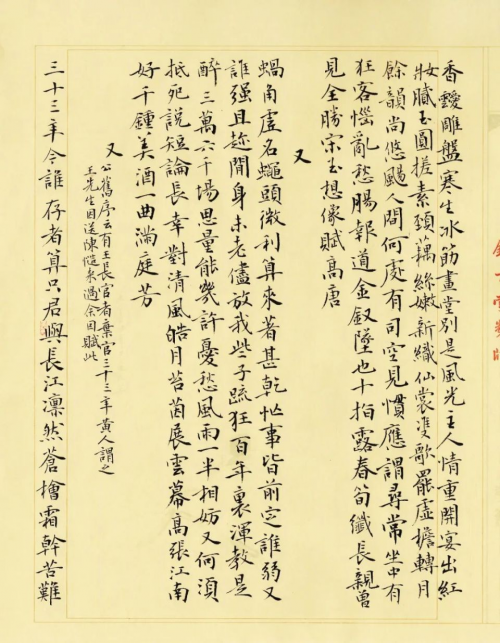 香靉雕盤寒生冰筋畫堂別是風光主人情重開宴出紅
妝膩玉圓搓素頸藕絲嫩新織仙裳雙歌罷虛擔轉月
餘韻尚悠颺人間何處有司空見慣應謂尋常坐中有
狂客惱亂愁腸報道金釵墜也十指露春筍纖長親曾
見全勝宋玉想像賦高唐
又
蝸角虛名蠅頭微利算來著甚乾忙事皆前定誰弱又
誰強且趁閒身未老儘放我些子疏狂百年裏渾教是
醉三萬六千場思量能幾許憂愁風雨一半相妨又何須
抵死說短論長幸對清風皓月苔茵展雲幕高張江南
好千鍾美酒一曲滿庭芳
又
公舊序云有王長官者棄官三十三年黃人謂之
王先生因送陳慥來過余因賦此
三十三年今誰存者算只君與長江凜然蒼檜霜幹苦難